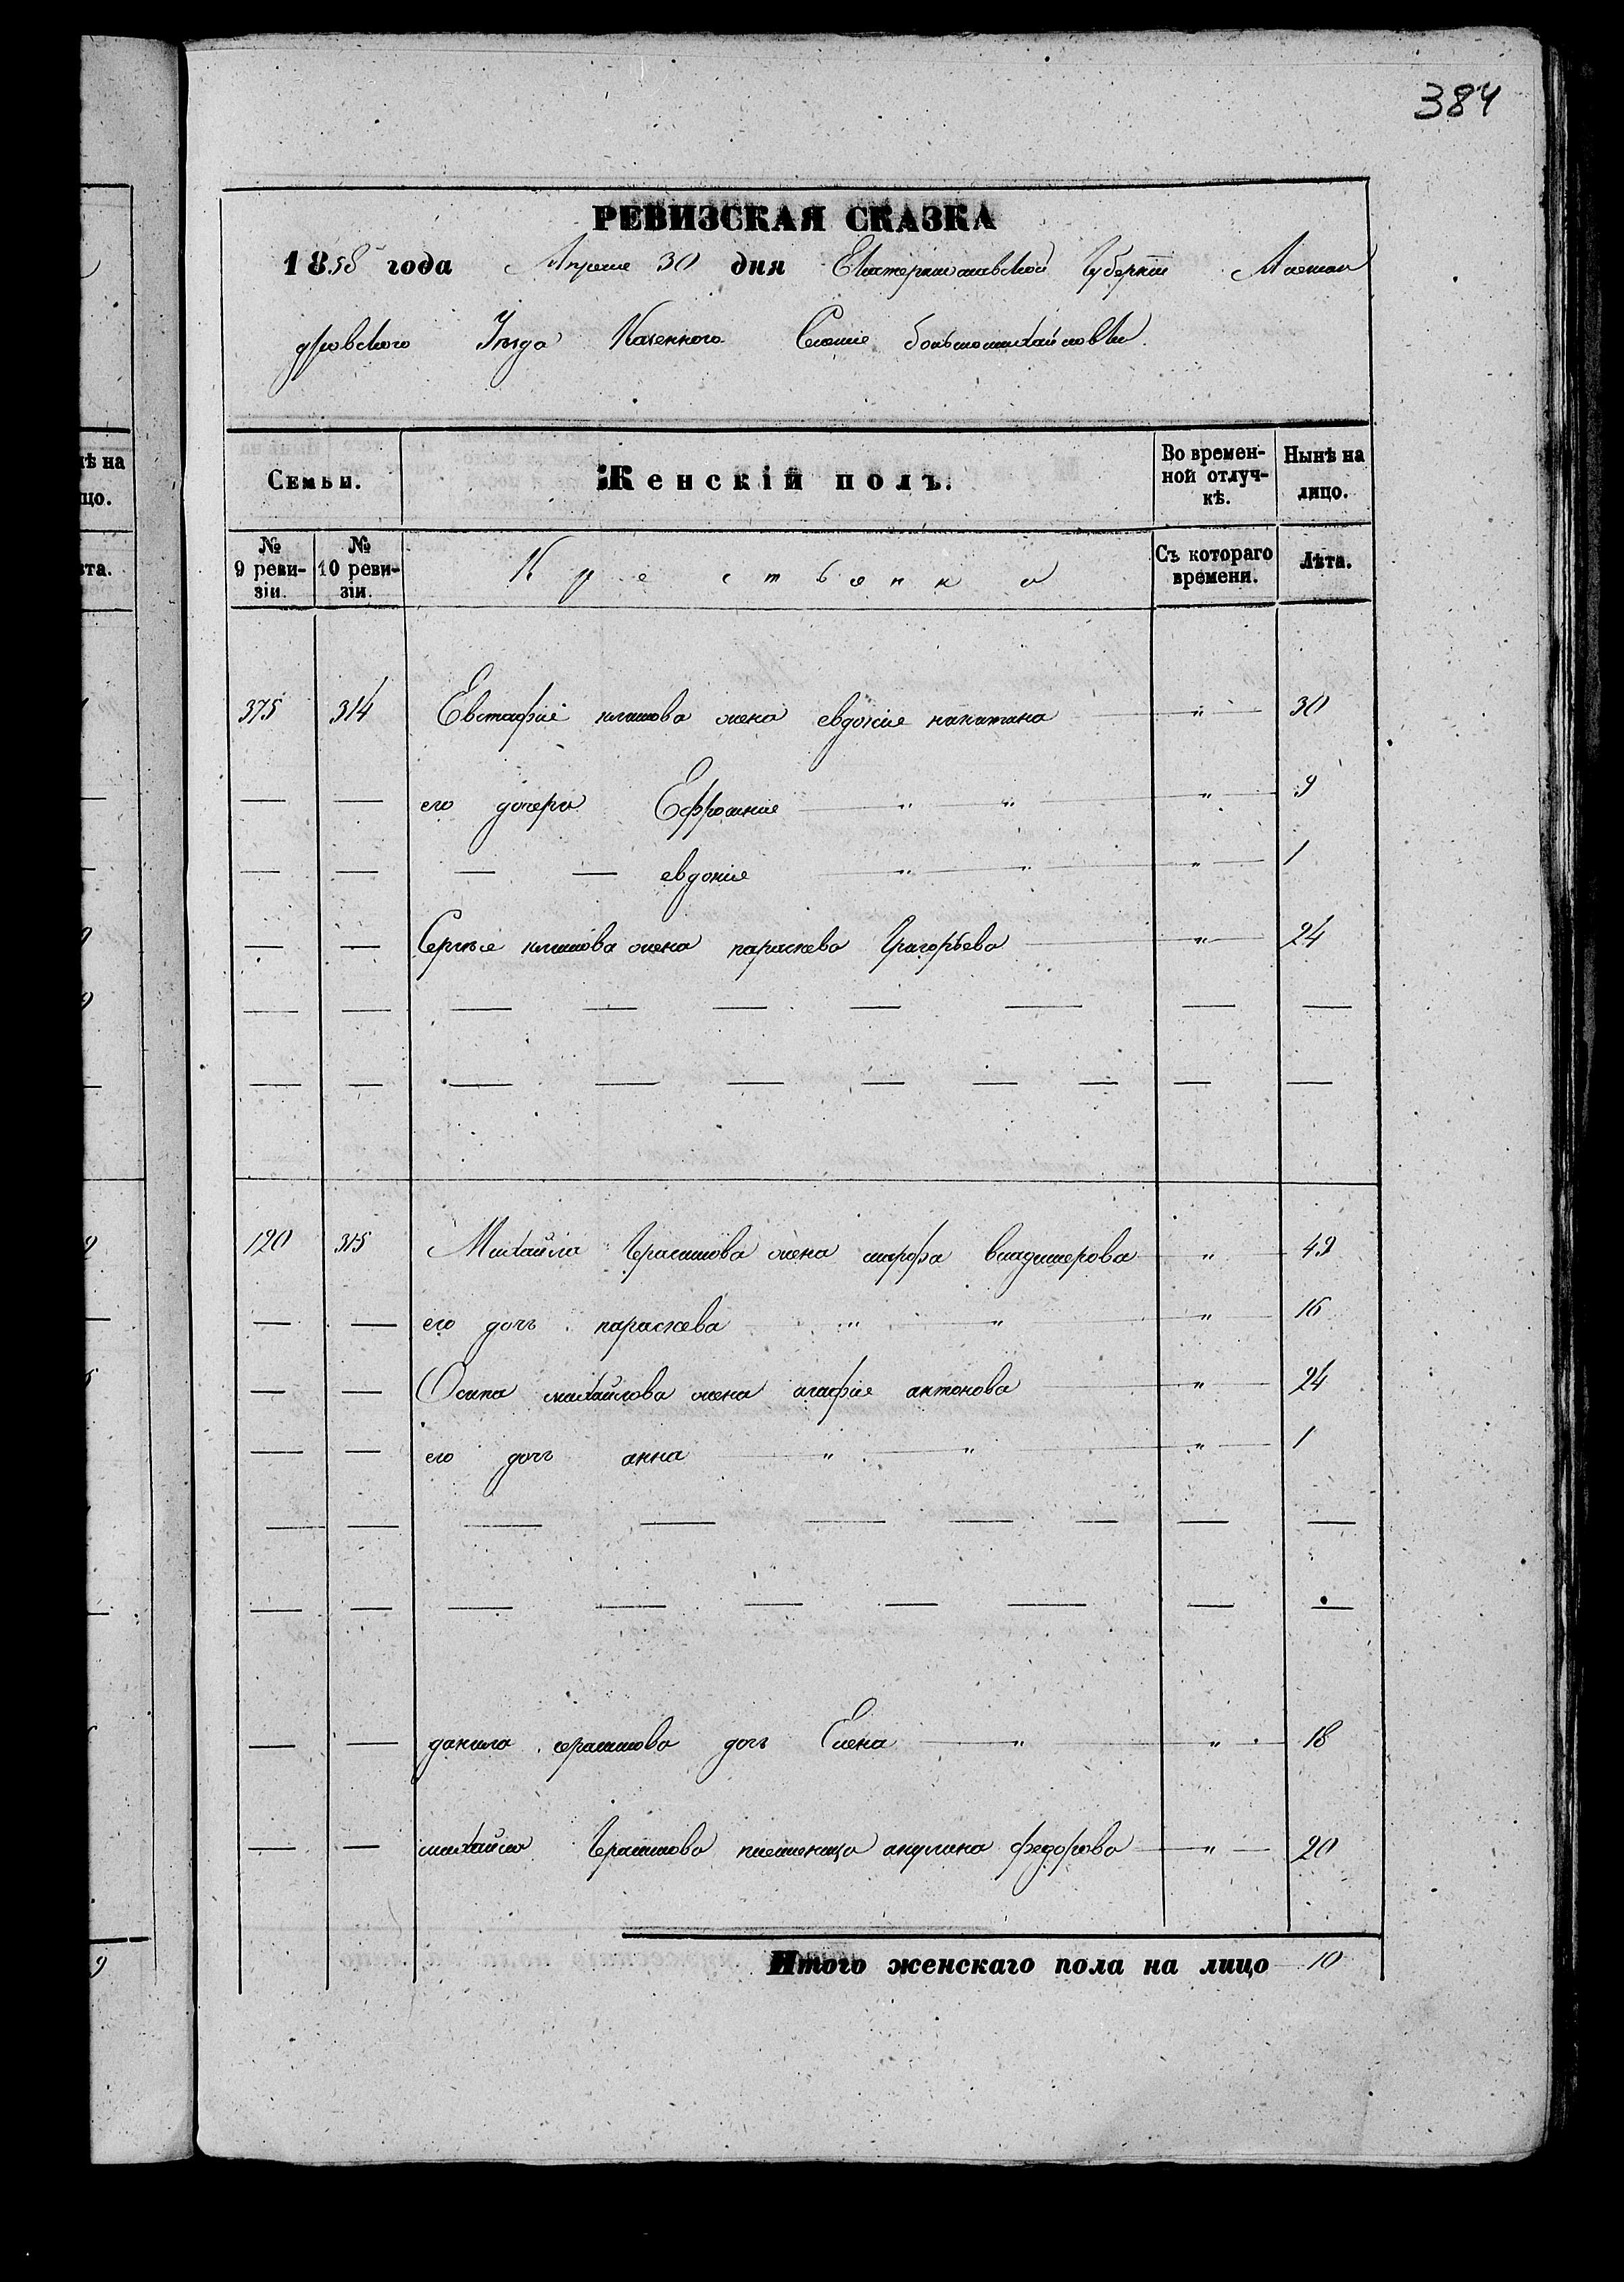 384
РЕВИЗСКАЯ СКАЗКА
1858 года Апреля 30 дня Екатеринославской Губернiи Алексан
дровского Уезда Казенного Селенiе большомихайловки
Семьи. Женскiй полъ. Во времен- Нынѣ на
ной отлуч- лицо.
кѣ.
№ № Крестьянка Съ котораго Лѣта.
9 реви- 10 реви- времени.
зiи. зiи.
375 314 Евстафiе климова жена евдокiе капитана " 30
его дочери Ефросинiе " " " 9
— — — — евдокiе " " " 1
— — Сергѣе климова жена параскева Григорьева " 24
120 315 Михайла Герасимова жена марфа владимерова " 49
— — его дочь параскева " " " 16
— — Осипа михайлова жена агафiе антонова " 24
— — его дочь анна " " " 1
— — данила герасимова дочь Елена " " 18
— — михайла Герасимова племеница акулина федорова " 20
Итого женскаго пола на лицо 10
ѣ на
цо.
ѣта.